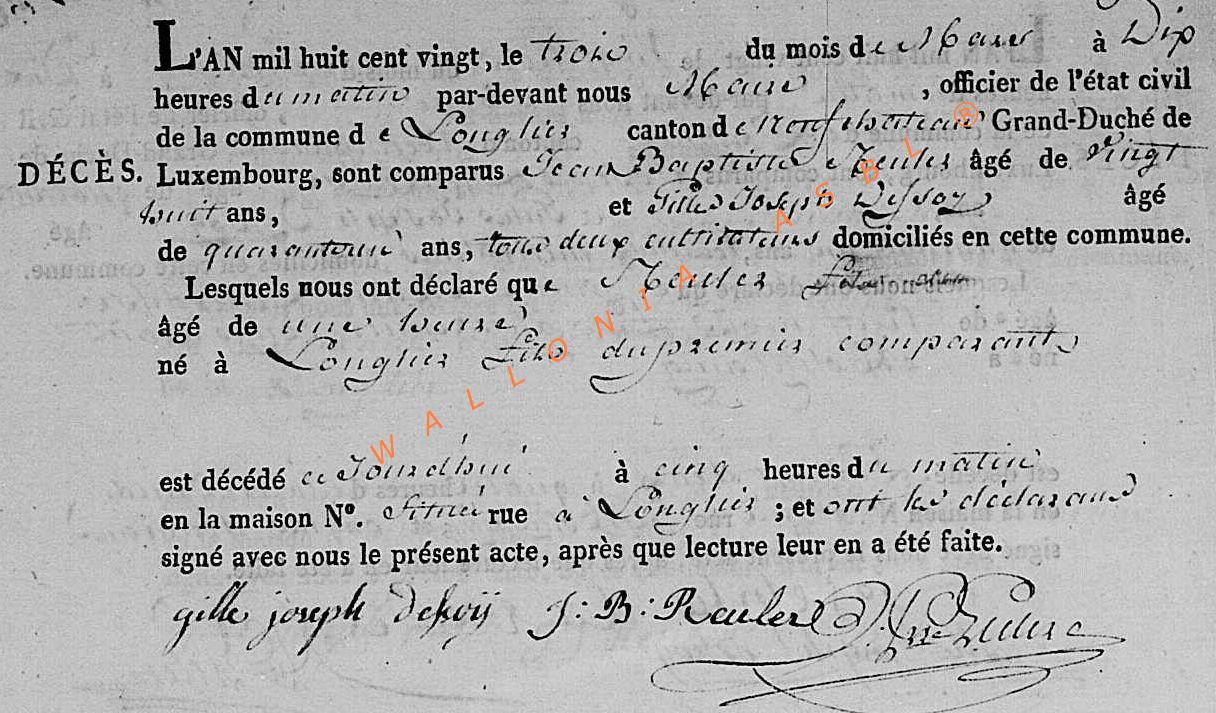 L'AN mil huit cent vingt, le trois du mois de Mars à Dix
heures du matin par-devant nous Maire , officier de l'état civil
de la commune de Longlier canton de Neufchateau Grand-Duché de
DÉCÈS. Luxembourg, sont comparus Jean Baptiste Reuler âgé de vingt
huit ans, et Gille Joseph Dessoy âgé
de quarante ans, tous deux domiciliés en cette commune.
Lesquels nous ont déclaré que Reuler
âgé de une heure
né à Longlier fils du premier comparant
est décédé ce Jourdhui à cinq heures du matin
en la maison N°. située rue à Longlier ; et ont les déclarans
signé avec nous le présent acte, après que lecture leur en a été faite.
gille joseph dessoÿ J : B : Reuler
WALLONIA ASBL ®